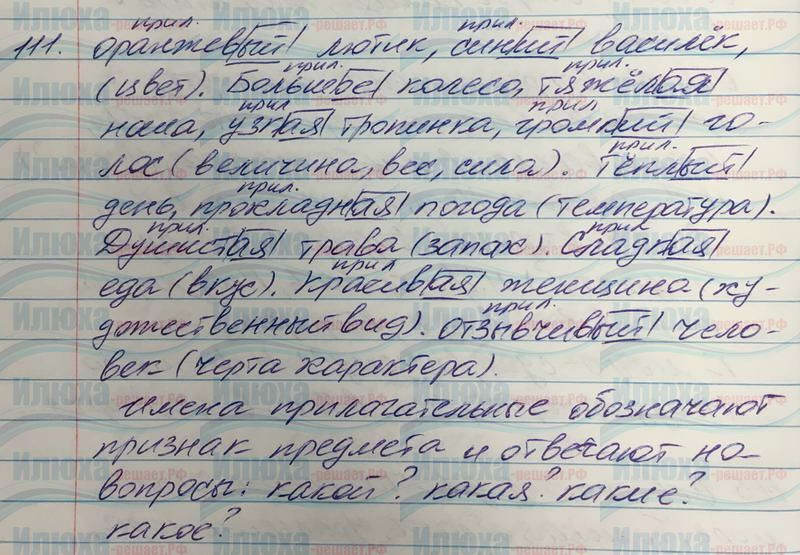 111. оранжевый лютик, синий василёк,
(цвет). Большое колесо, тяжёлая
ноша, узкая тропинка, громкий го-
лос (величина, вес, сила). Тёплый
день, прохладная погода (температура).
Душистая трава (запах). Сладкая
еда (вкус). Красивая женщина (ху-
дожественный вид). отзывчивый чело-
век (черта характера).
имена прилагательные обозначают
признак предмета и отвечают на
вопросы: какой? какая? какие?
какое?